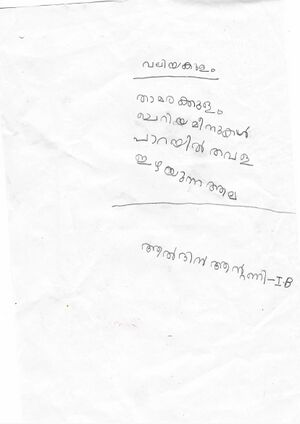 വലിയകുളം
താമരക്കുളം
ചെറിയ മീനുകൾ
പാറയിൽ തവള
ഇഴയുന്ന ആമ
ആൽബിൻ ആന്റണി - I-B